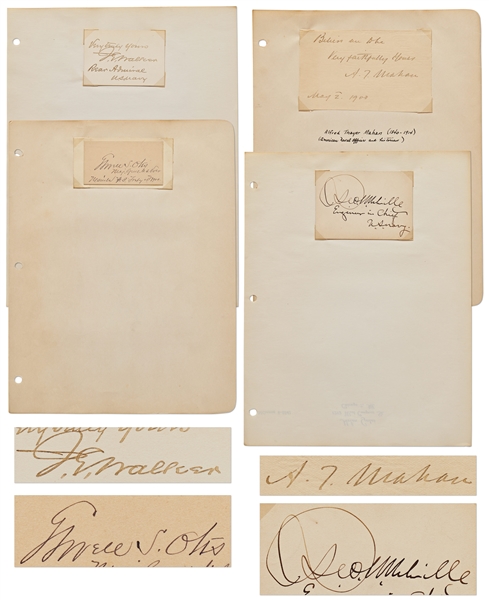 Very truly yours
J. G. Walker
Rear Admiral
U.S. Navy
Believe me to be
Very faithfully Yours
A. T. Mahan
May 2 1900
Alfred Thayer Mahan (1840-1914)
(American Naval Officer and historian)
Elwell S. Otis
Maj. Gen. U.S. Vols
Manila
Geo. W. Melville
Engineer in Chief
U.S. Navy.
Very truly yours
J. G. Walker
A. T. Mahan
Elwell S. Otis
Geo. W. Melville